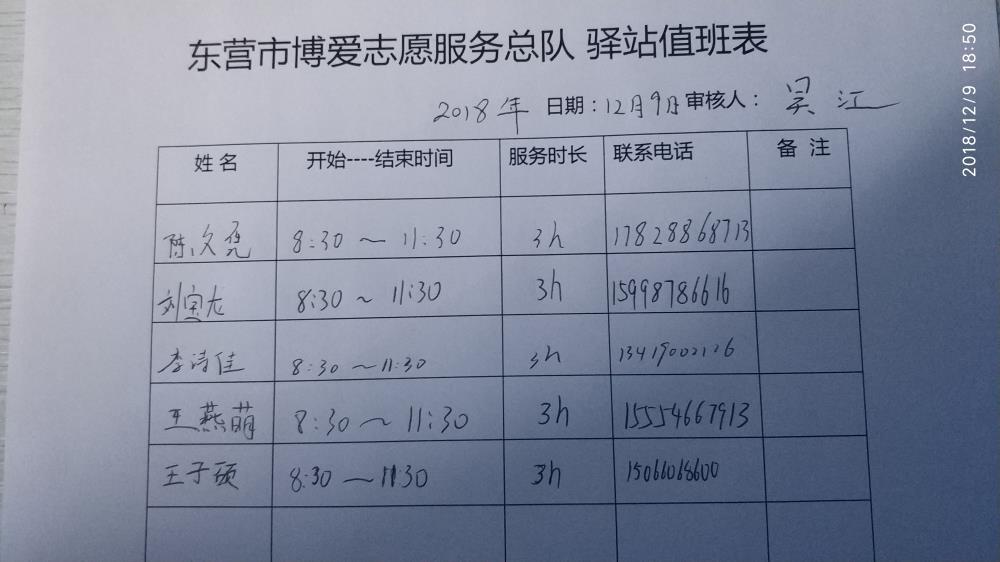 东营市博爱志愿服务总队 驿站值班表
2018年 日期：12月9日 审核人： 吴江
姓名 开始----结束时间 服务时长 联系电话 备注
陈文尧 8:30 ~ 11:30 3h 17828868713
刘寅龙 8:30 ~ 11:30 3h 15998786616
李诗佳 8:30 ~ 11:30 3h 13419002126
王燕萌 8:30 ~ 11:30 3h 15554667913
王子硕 8:30 — 11:30 3h 15066068600
2018/12/9 18:50